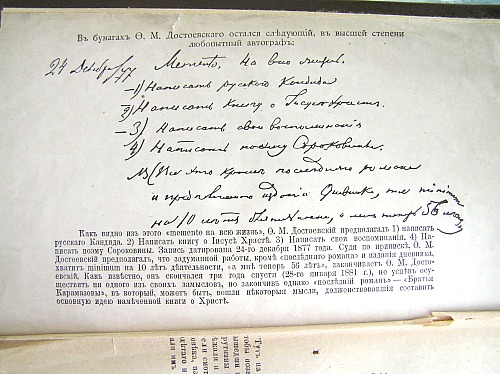 Въ бумагахъ Ѳ. М. Достоевскаго остался слѣдующій, въ высшей степени
любопытный автографъ:
24 Декабря/77 Memento. На всю жизнь.
—1) Написать русскаго Кандида
—2) Написать книгу о Іисусѣ Христѣ.
—3) Написать свои воспоминанія
4) Написать поэму Сороковины.
NB (Все это кромѣ послѣдняго романа
и изданія Дневника, т. е. minimum
на 10 лѣтъ дѣятельности, а мнѣ теперь 56 лѣтъ)
Какъ видно изъ этого «memento на всю жизнь», Ѳ. М. Достоевскій предполагалъ 1) написать
русскаго Кандида. 2) Написать книгу о Іисусѣ Христѣ. 3) Написать свои воспоминанія. 4) На-
писать поэму Сороковины. Запись датирована 24-го декабря 1877 года. Судя по припискѣ, Ѳ. М.
Достоевскій предполагалъ, что задуманной работы, кромѣ «послѣдняго романа» и изданія дневника,
хватитъ minimum на 10 лѣтъ дѣятельности, «а мнѣ теперь 56 лѣтъ», заканчиваетъ Ѳ. М. Досто-
евскій. Какъ извѣстно, онъ скончался три года спустя (28-го января 1881 г.), не успѣвъ осу-
ществить ни одного изъ своихъ замысловъ, но закончивъ однако «послѣдній романъ»—«Братья
Карамазовы», въ который, можетъ быть, вошли нѣкоторыя мысли, долженствовавшія составить
основную идею намѣченной книги о Христѣ.